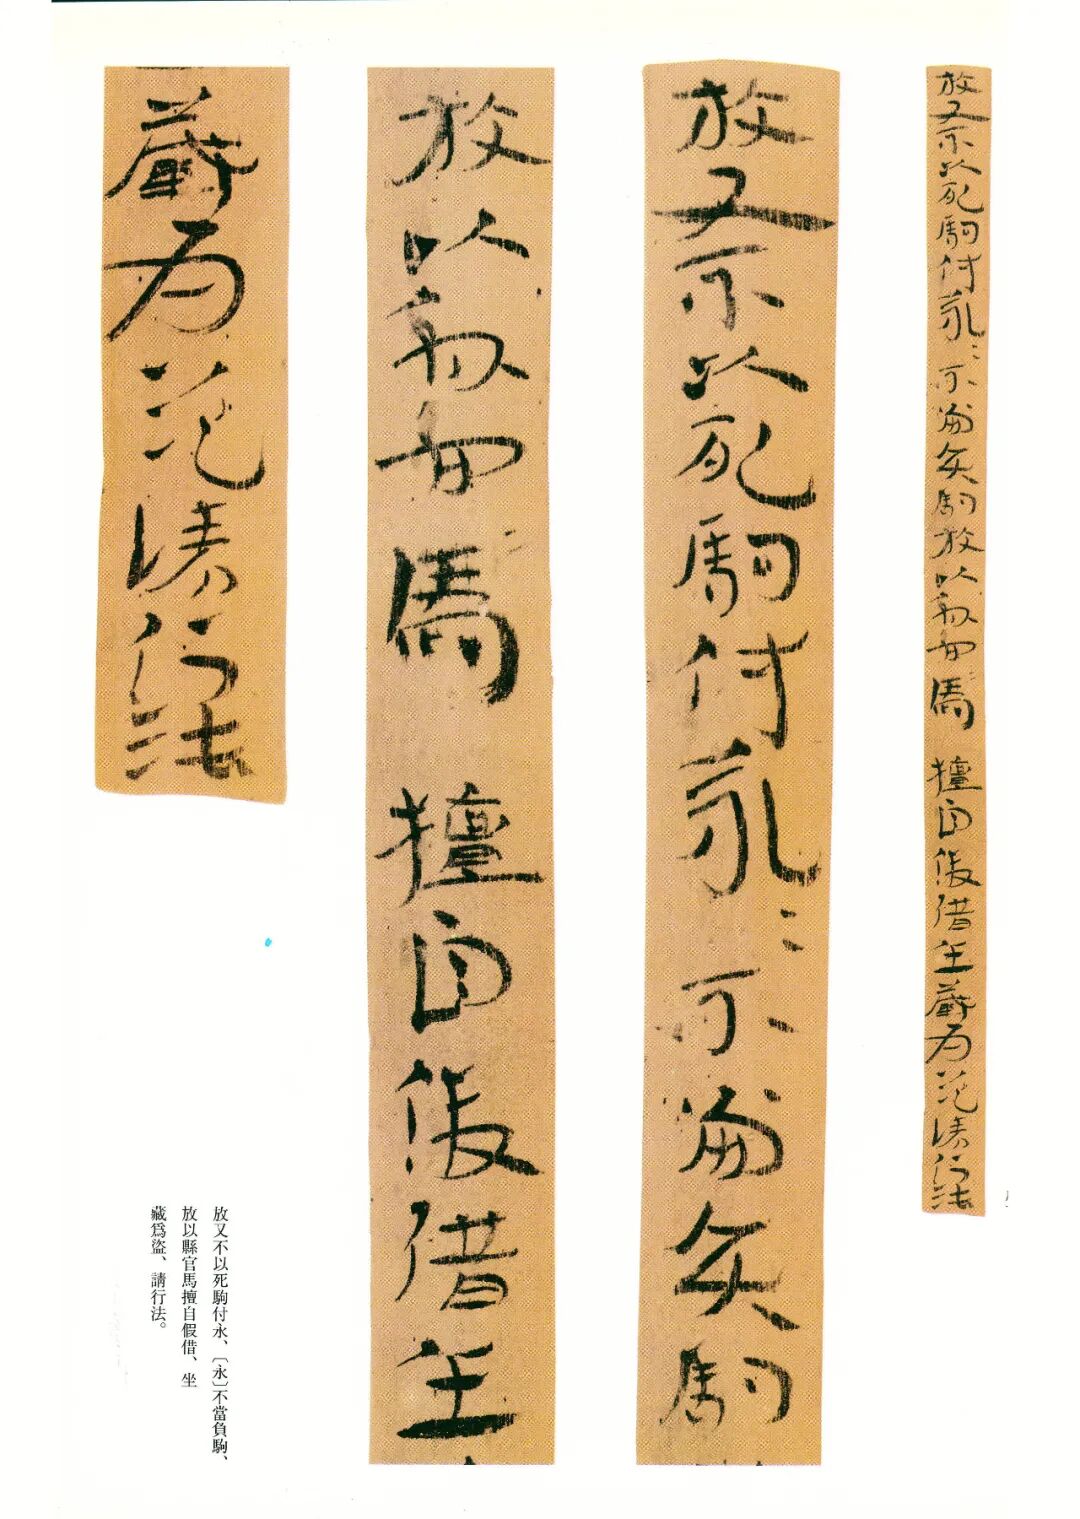 放又不以死駒付永=不當負駒放以縣官馬擅自假借坐藏爲盜請行法
放又不以死駒付永=不當負駒
放以縣官馬擅自假借坐
藏爲盜請行法
放又不以死駒付永、〔永〕不當負駒、
放以縣官馬擅自假借、坐
藏爲盜、請行法。